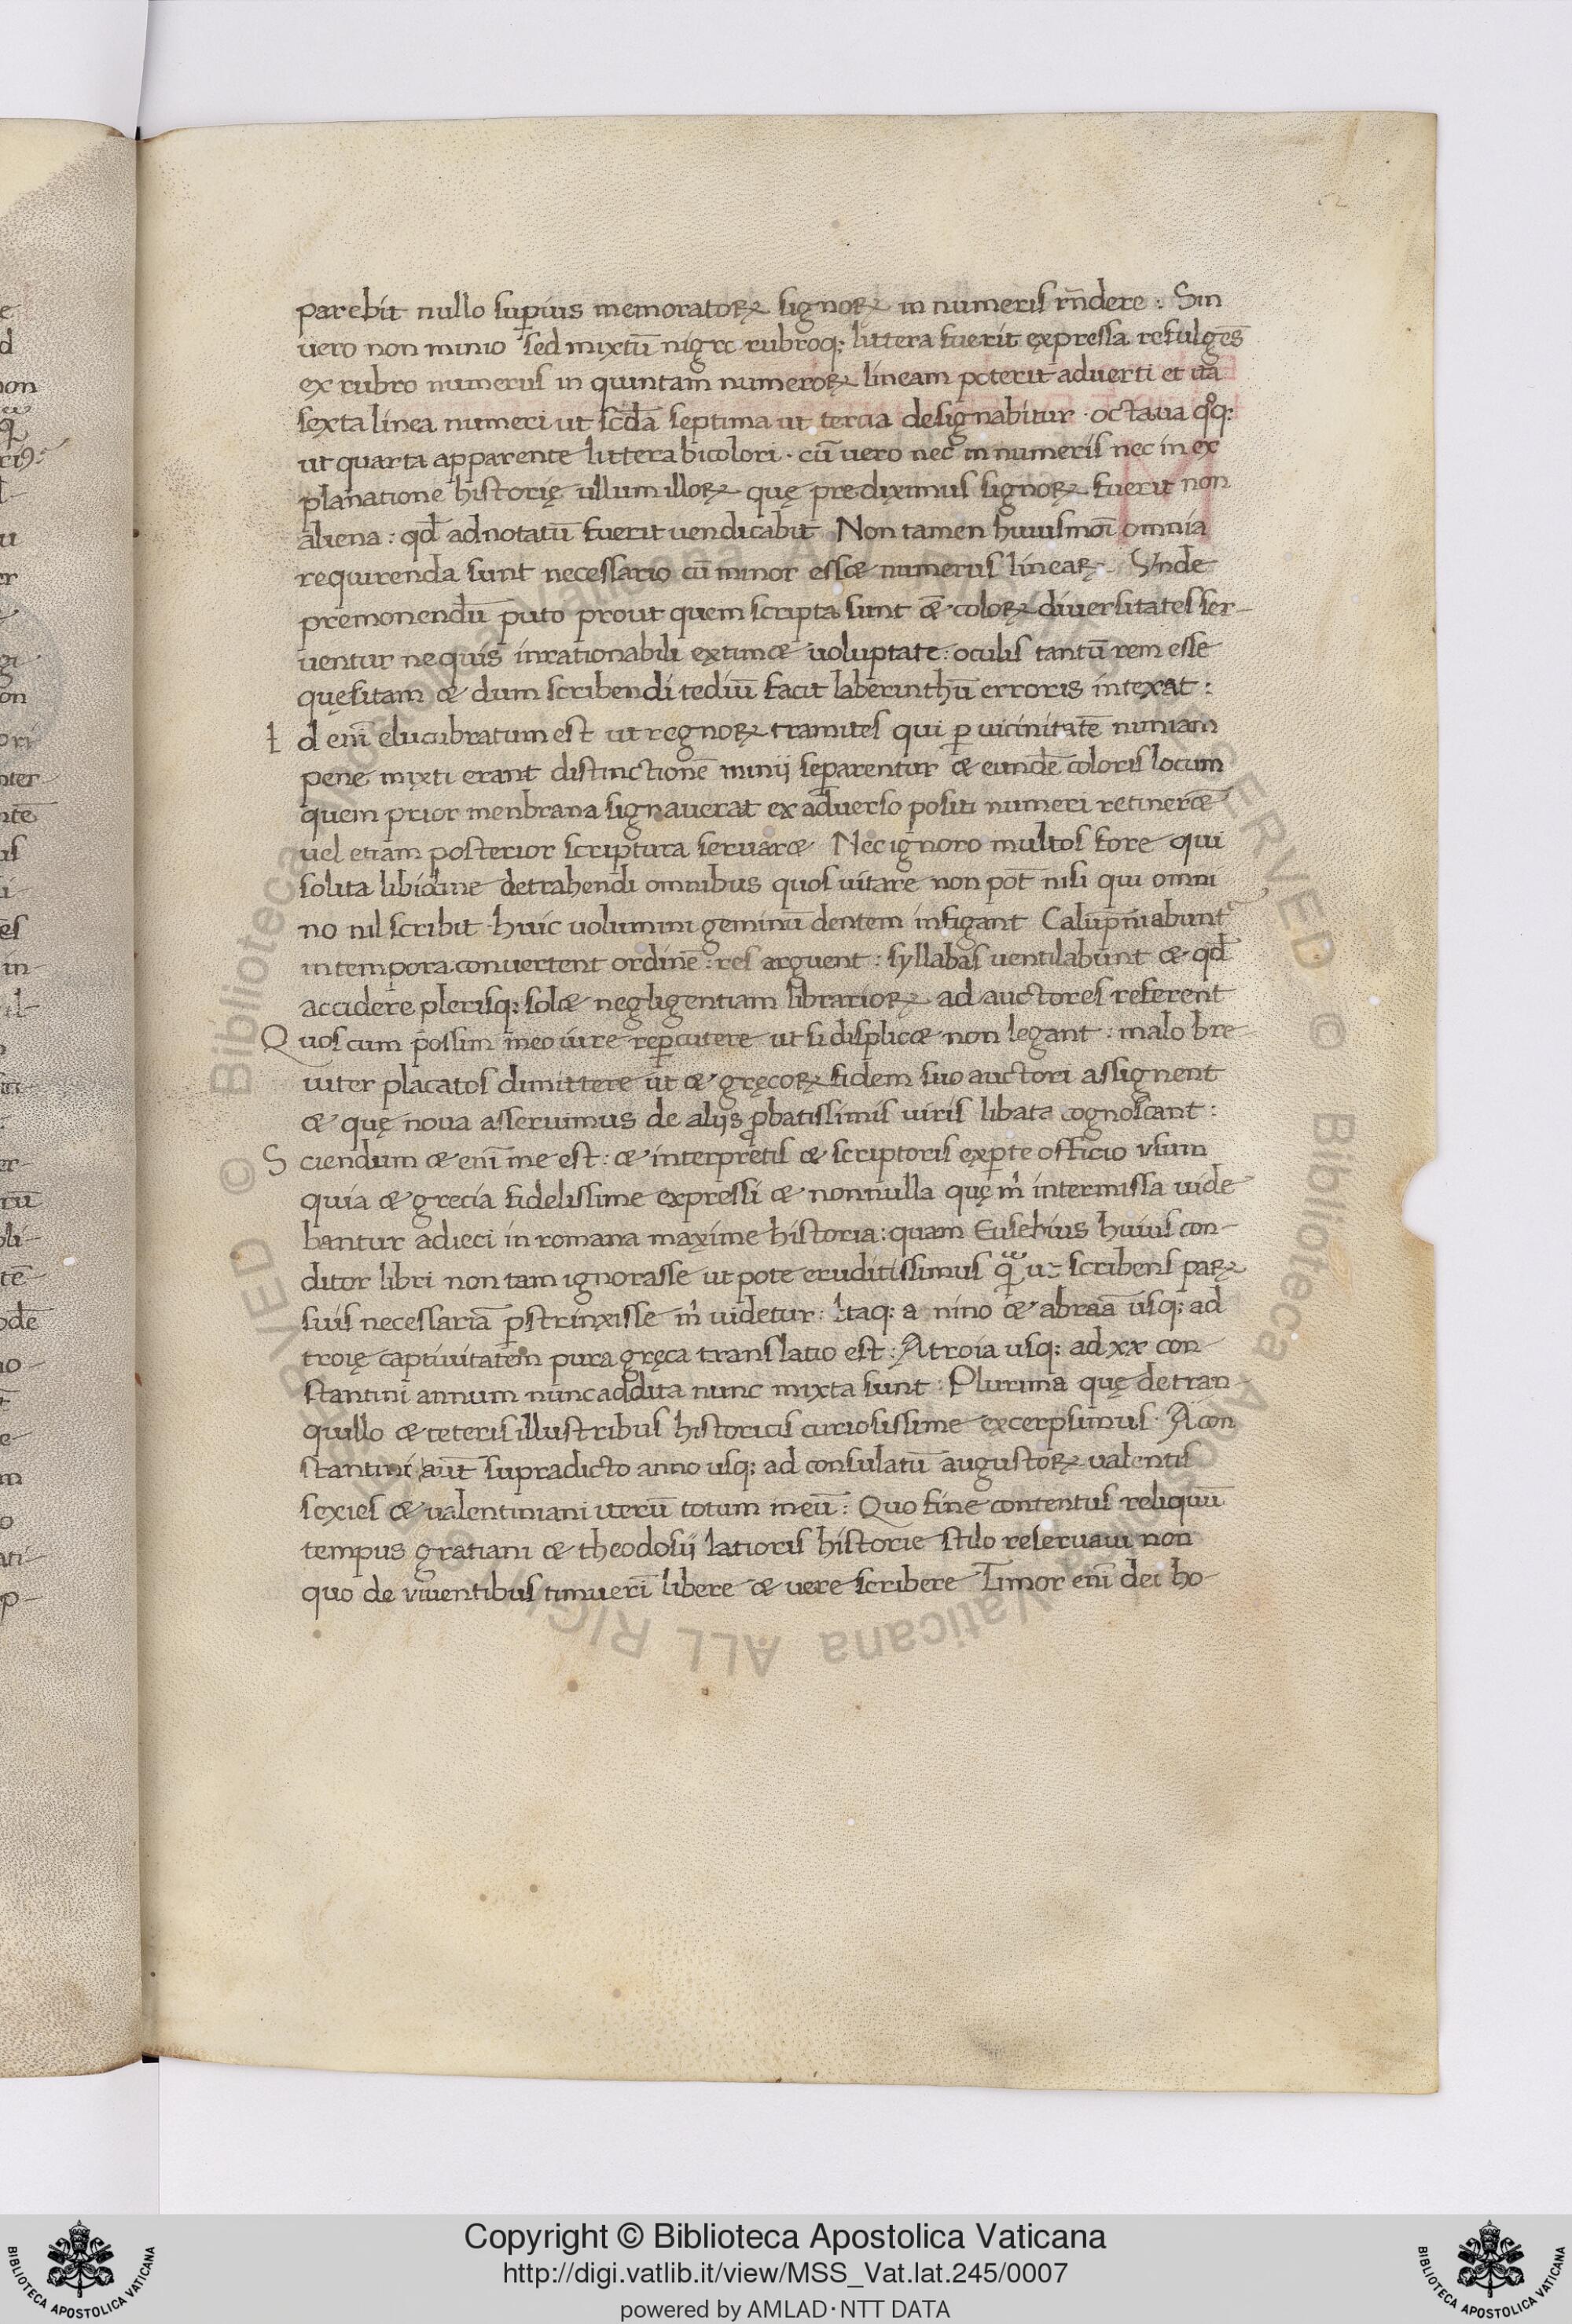 parebit nullo suꝑius memoratoꝝ signoꝝ in numeris rn̄dere : Sin
uero non minio sed mixtū nigro rubroq; littera fuerit ęxpressa refulgēs
ex rubro numerus in quintam numeroꝝ lineam poterit aduerti et ita
sexta linea numeri ut scđa septima ut tercia designabitur · octaua qͦq;
ut quarta apparente littera bicolori · cū uero nec in numeris nec in ex
planatione historię ullum illoꝝ quę prediximus signoꝝ fuerit non
aliena : qđ adnotatū fuerit uendicabit Non tamen huiusmoi omnia
requirenda sunt necessario cū minor esset numerus lineaꝝ. Vnde
premonendū puto prout quem scripta sunt et̄ coloꝝ diuersitates ser-
uentur ne quis inrationabili extimet uoluptate : oculis tantū rem esse
quęsitam et dum scribendi tediū facit laberinthū erroris intexat :
I d eni elucubratum est ut regnoꝝ tramites qui ꝑ uicinitatē nimiam
pene mixti erant distinctionē minij separentur et eundē coloris locum
quem prior menbrana signauerat ex aduerso positi numeri retineret
uel etiam posterior scriptura seruaret Nec ignoro multos fore qui
solita libidine detrahendi omnibus quos uitare non pōt nisi qui omni
no nil scribit huic uolumini geminū dentem infigant Calūpniabunt
in tempora conuertent ordinē : res arguent : syllabas uentilabunt et qđ
accidere plerisq; solet negligentiam librarioꝝ ad auctores referent
Q uos cum possim meo iure reꝑcutere ut si displicet non legant : malo bre
uiter placatos dimittere ut et gręcoꝝ fidem suo auctori assignent
et quę noua asseruimus de alijs ꝓbatissimis uiris libata cognoscant :
S ciendum et eni me est : et interpretis et scriptoris exꝑte officio vsum
quia et grecia fidelissime expressi et nonnulla quę m̓ intermissa uide
bantur adieci in romana maxime historia : quam Eusebius huius con-
ditor libri non tam ignorasse ut pote eruditissimus ut scribens paꝝ
suis necessariā ꝑstrinxisse m̓ uidetur : Itaq; a nino et abraā usq; ad
troię captiuitatem pura gręca translatio est : A troia usq; ad xx con-
stantini annum nunc addita nunc mixta sunt : Plurima quę de tran-
quillo et ceteris illustribus historicis curiosissime excerpsimus · A con
stantini aūt supradicto anno usq; ad consulatū augustoꝝ ualentis
sexies et ualentiniani iterū totum meū : Quo fine contentus reliquū
tempus gratiani et theodosij latioris historie stilo reseruaui non
quo de viuentibus timueri libere et uere scribere Timor eni dei ho-
Copyright © Biblioteca Apostolica Vaticana
http://digi.vatlib.it/view/MSS_Vat.lat.245/0007
powered by AMLAD·NTT DATA
BIBLIOTECA APOSTOLICA VATICANA
BIBLIOTECA APOSTOLICA VATICANA